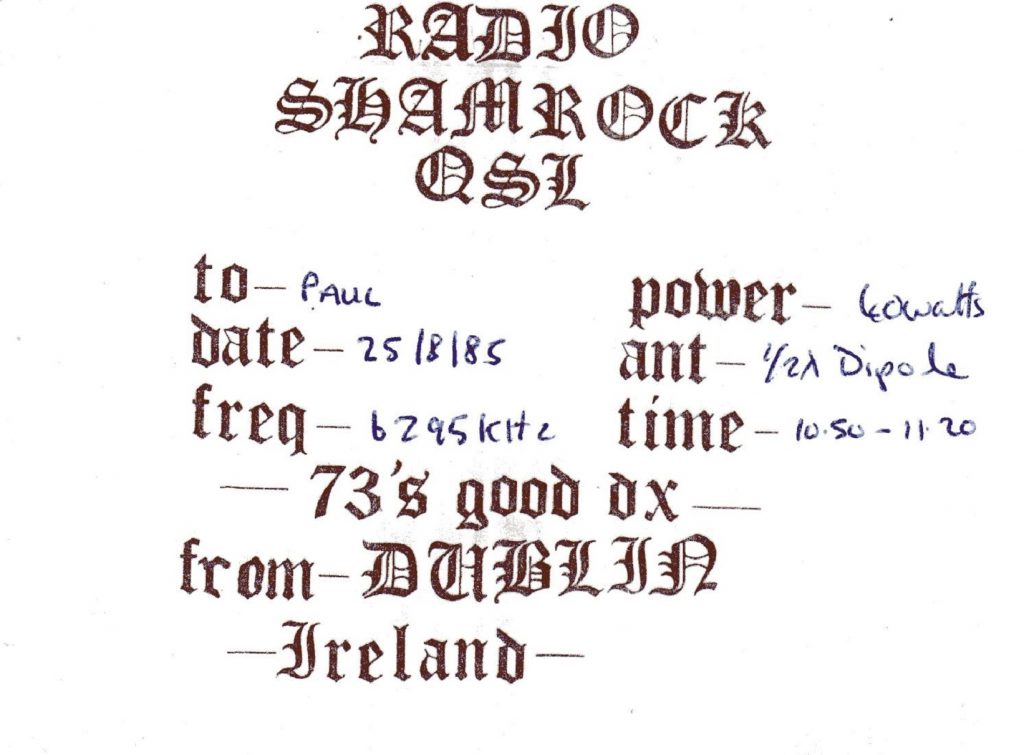 RADIO
SHAMROCK
QSL
to – PAUL
power –
date – 25/8/85
ant – 1/2λ Dipole
freq – 6295KHz
time – 10.50 – 11.20
— 73's good dx —
from – DUBLIN
— Ireland —